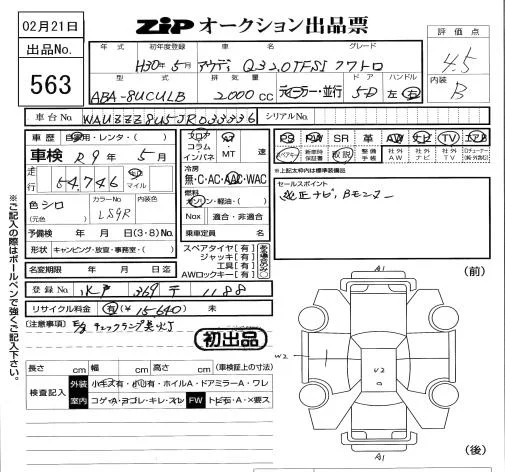 02月21日
ZIP オークション出品票
出品No.
563
評価点
4.5
内装
B
年式 初年度登録 車名 グレード
H30年5月 アウディ Q3 2.0TFSI クワトロ
型式 排気量 ドア ハンドル
ABA-8UCULB 2000cc 元ディーラー・並行 5D 左・右
車台No. WAUZZZ8U5JR033336 シリアルNo.
車歴 自家用・レンタ・( )
車検 R9年5月
走行 54,746 Km マイル
色 シロ (元色) カラーNo. LS9R 内装色
予備検 年 月 日 (3・8) No.
形状 キャンピング・放宣・事務室・( )
名変期限 年 月 日迄
フロア コラム インパネ AT・MT 速
冷房 無・C・AC・AAC・WAC
燃料 ガソリン・軽油・( )
Nox 適合・非適合
乗車定員 名
スペアタイヤ[有]
ジャッキ[有]
工具[有]
AWロックキー[有]
PS PW SR 革 AW ナビ TV エアB
スペアキー 新車時保証書 取説 整備手帳 社外AW 社外ナビ 社外TV
※上記太枠内は標準装備品
セールスポイント
純正ナビ、Bモニター
登録No. 水戸 369 す 1188
リサイクル料金 有(¥15,640) 無
(注意事項) E/g チェックランプ点灯
初出品
長さ cm 幅 cm 高さ cm (車検証上の寸法)
検査記入
外装 小キズ有・小凹有・ホイルA・ドアミラーA・ワレ
室内 コゲ・A・ヨゴレ・キレ・スレ FW トビ石・A・X要ス
※ご記入の際はボールペンで強くご記入下さい。
(前)
A1
W2
U2
A1
(後)